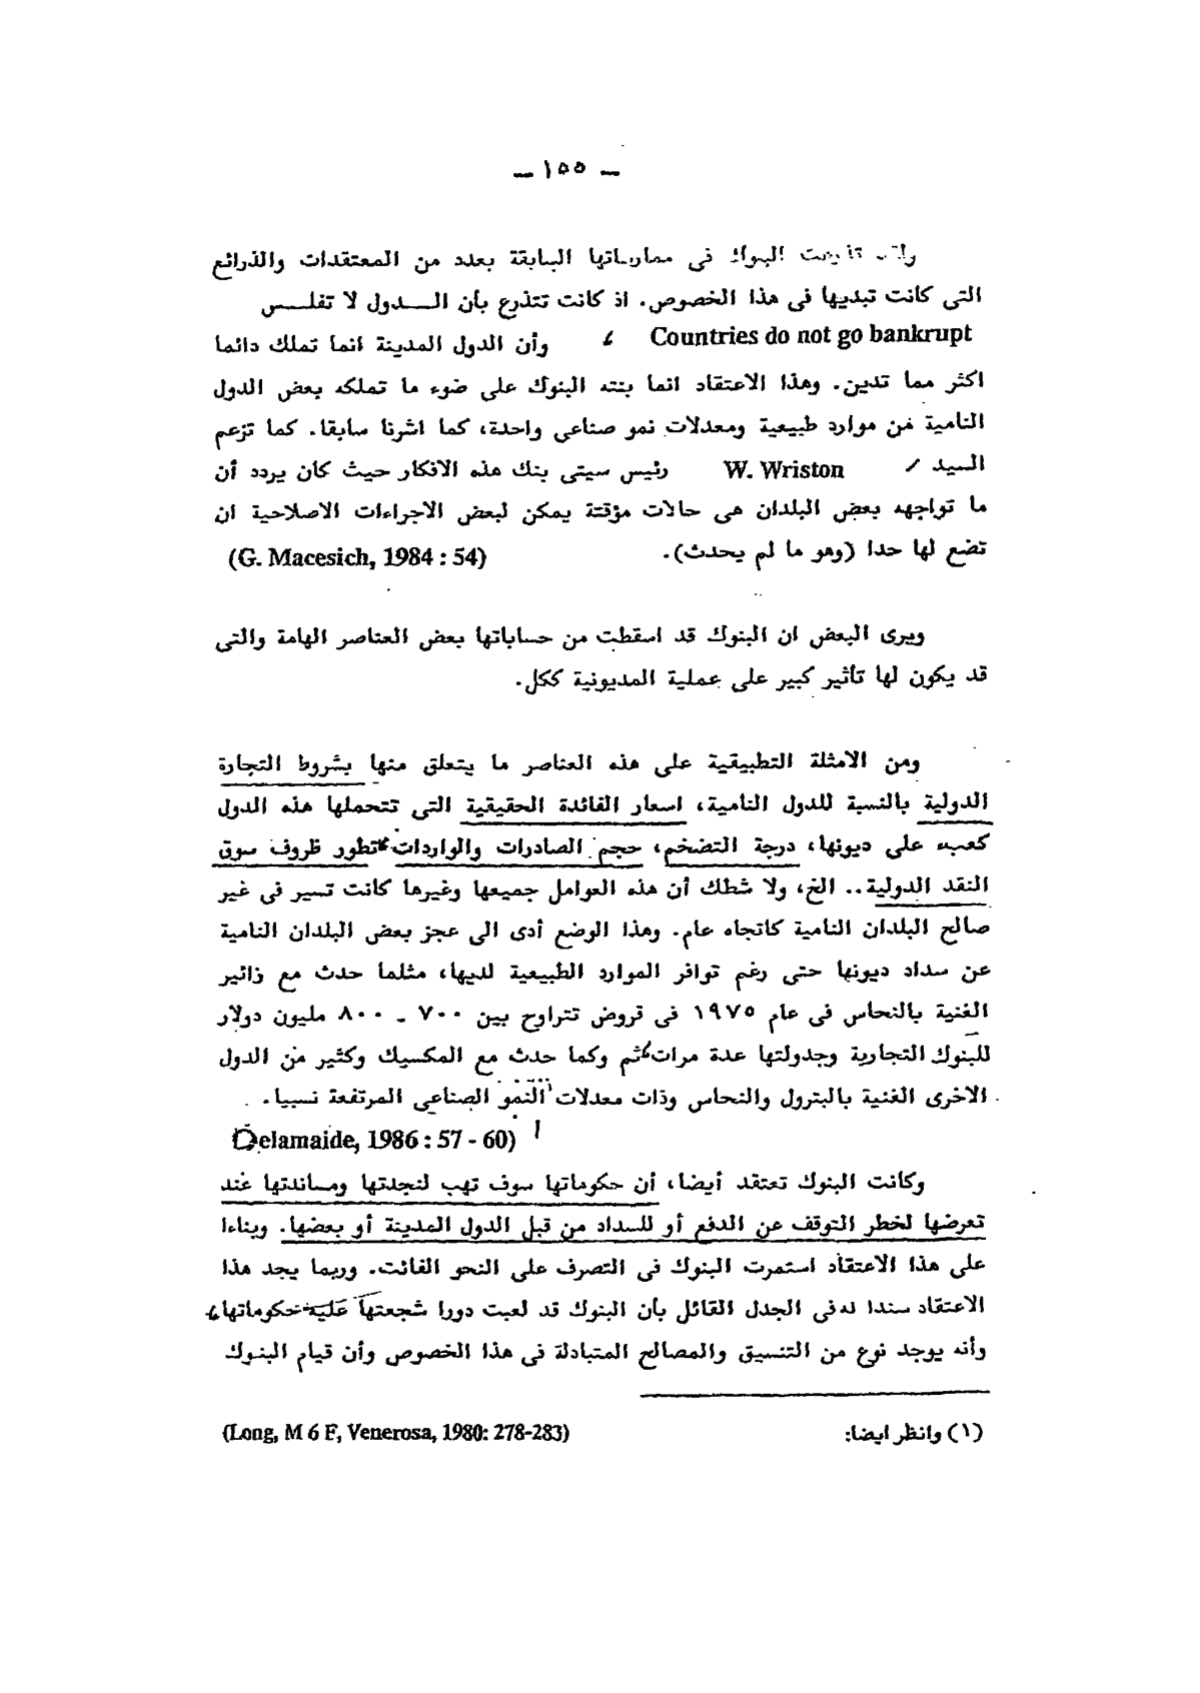 ـ ١٥٥ ـ
البنوك فى ممارساتها السابقة بعدد من المعتقدات والذرائع
التى كانت تبديها فى هذا الخصوص. اذ كانت تتذرع بأن الـــدول لا تفلــس
Countries do not go bankrupt ، وأن الدول المدينة انما تملك دائما
اكثر مما تدين. وهذا الاعتقاد انما بنته البنوك على ضوء ما تملكه بعض الدول
النامية من موارد طبيعية ومعدلات نمو صناعى واحدة، كما اشرنا سابقا. كما تزعم
السيد / W. Wriston رئيس سيتى بنك هذه الافكار حيث كان يردد أن
ما تواجهه بعض البلدان هى حالات مؤقتة يمكن لبعض الاجراءات الاصلاحية ان
تضع لها حدا (وهو ما لم يحدث). (G. Macesich, 1984 : 54)
ويرى البعض ان البنوك قد اسقطت من حساباتها بعض العناصر الهامة والتى
قد يكون لها تأثير كبير على عملية المديونية ككل.
ومن الامثلة التطبيقية على هذه العناصر ما يتعلق منها بشروط التجارة
الدولية بالنسبة للدول النامية، اسعار الفائدة الحقيقية التى تتحملها هذه الدول
كعبء على ديونها، درجة التضخم، حجم الصادرات والواردات، تطور ظروف سوق
النقد الدولية.. الخ، ولا شطك أن هذه العوامل جميعها وغيرها كانت تسير فى غير
صالح البلدان النامية كاتجاه عام. وهذا الوضع أدى الى عجز بعض البلدان النامية
عن سداد ديونها حتى رغم توافر الموارد الطبيعية لديها، مثلما حدث مع زائير
الغنية بالنحاس فى عام ١٩٧٥ فى قروض تتراوح بين ٧٠٠ ـ ٨٠٠ مليون دولار
للبنوك التجارية وجدولتها عدة مرات، ثم وكما حدث مع المكسيك وكثير من الدول
الاخرى الغنية بالبترول والنحاس وذات معدلات النمو الصناعى المرتفعة نسبيا.
Delamaide, 1986 : 57 - 60)
وكانت البنوك تعتقد أيضا، أن حكوماتها سوف تهب لنجدتها ومساندتها عند
تعرضها لخطر التوقف عن الدفع أو للسداد من قبل الدول المدينة أو بعضها. وبناءا
على هذا الاعتقاد استمرت البنوك فى التصرف على النحو الفائت. وربما يجد هذا
الاعتقاد سندا له فى الجدل القائل بأن البنوك قد لعبت دورا شجعتها عليه حكوماتها،
وأنه يوجد نوع من التنسيق والمصالح المتبادلة فى هذا الخصوص وأن قيام البنوك
(١) وانظر ايضا: (Long, M 6 F, Venerosa, 1980: 278-283)